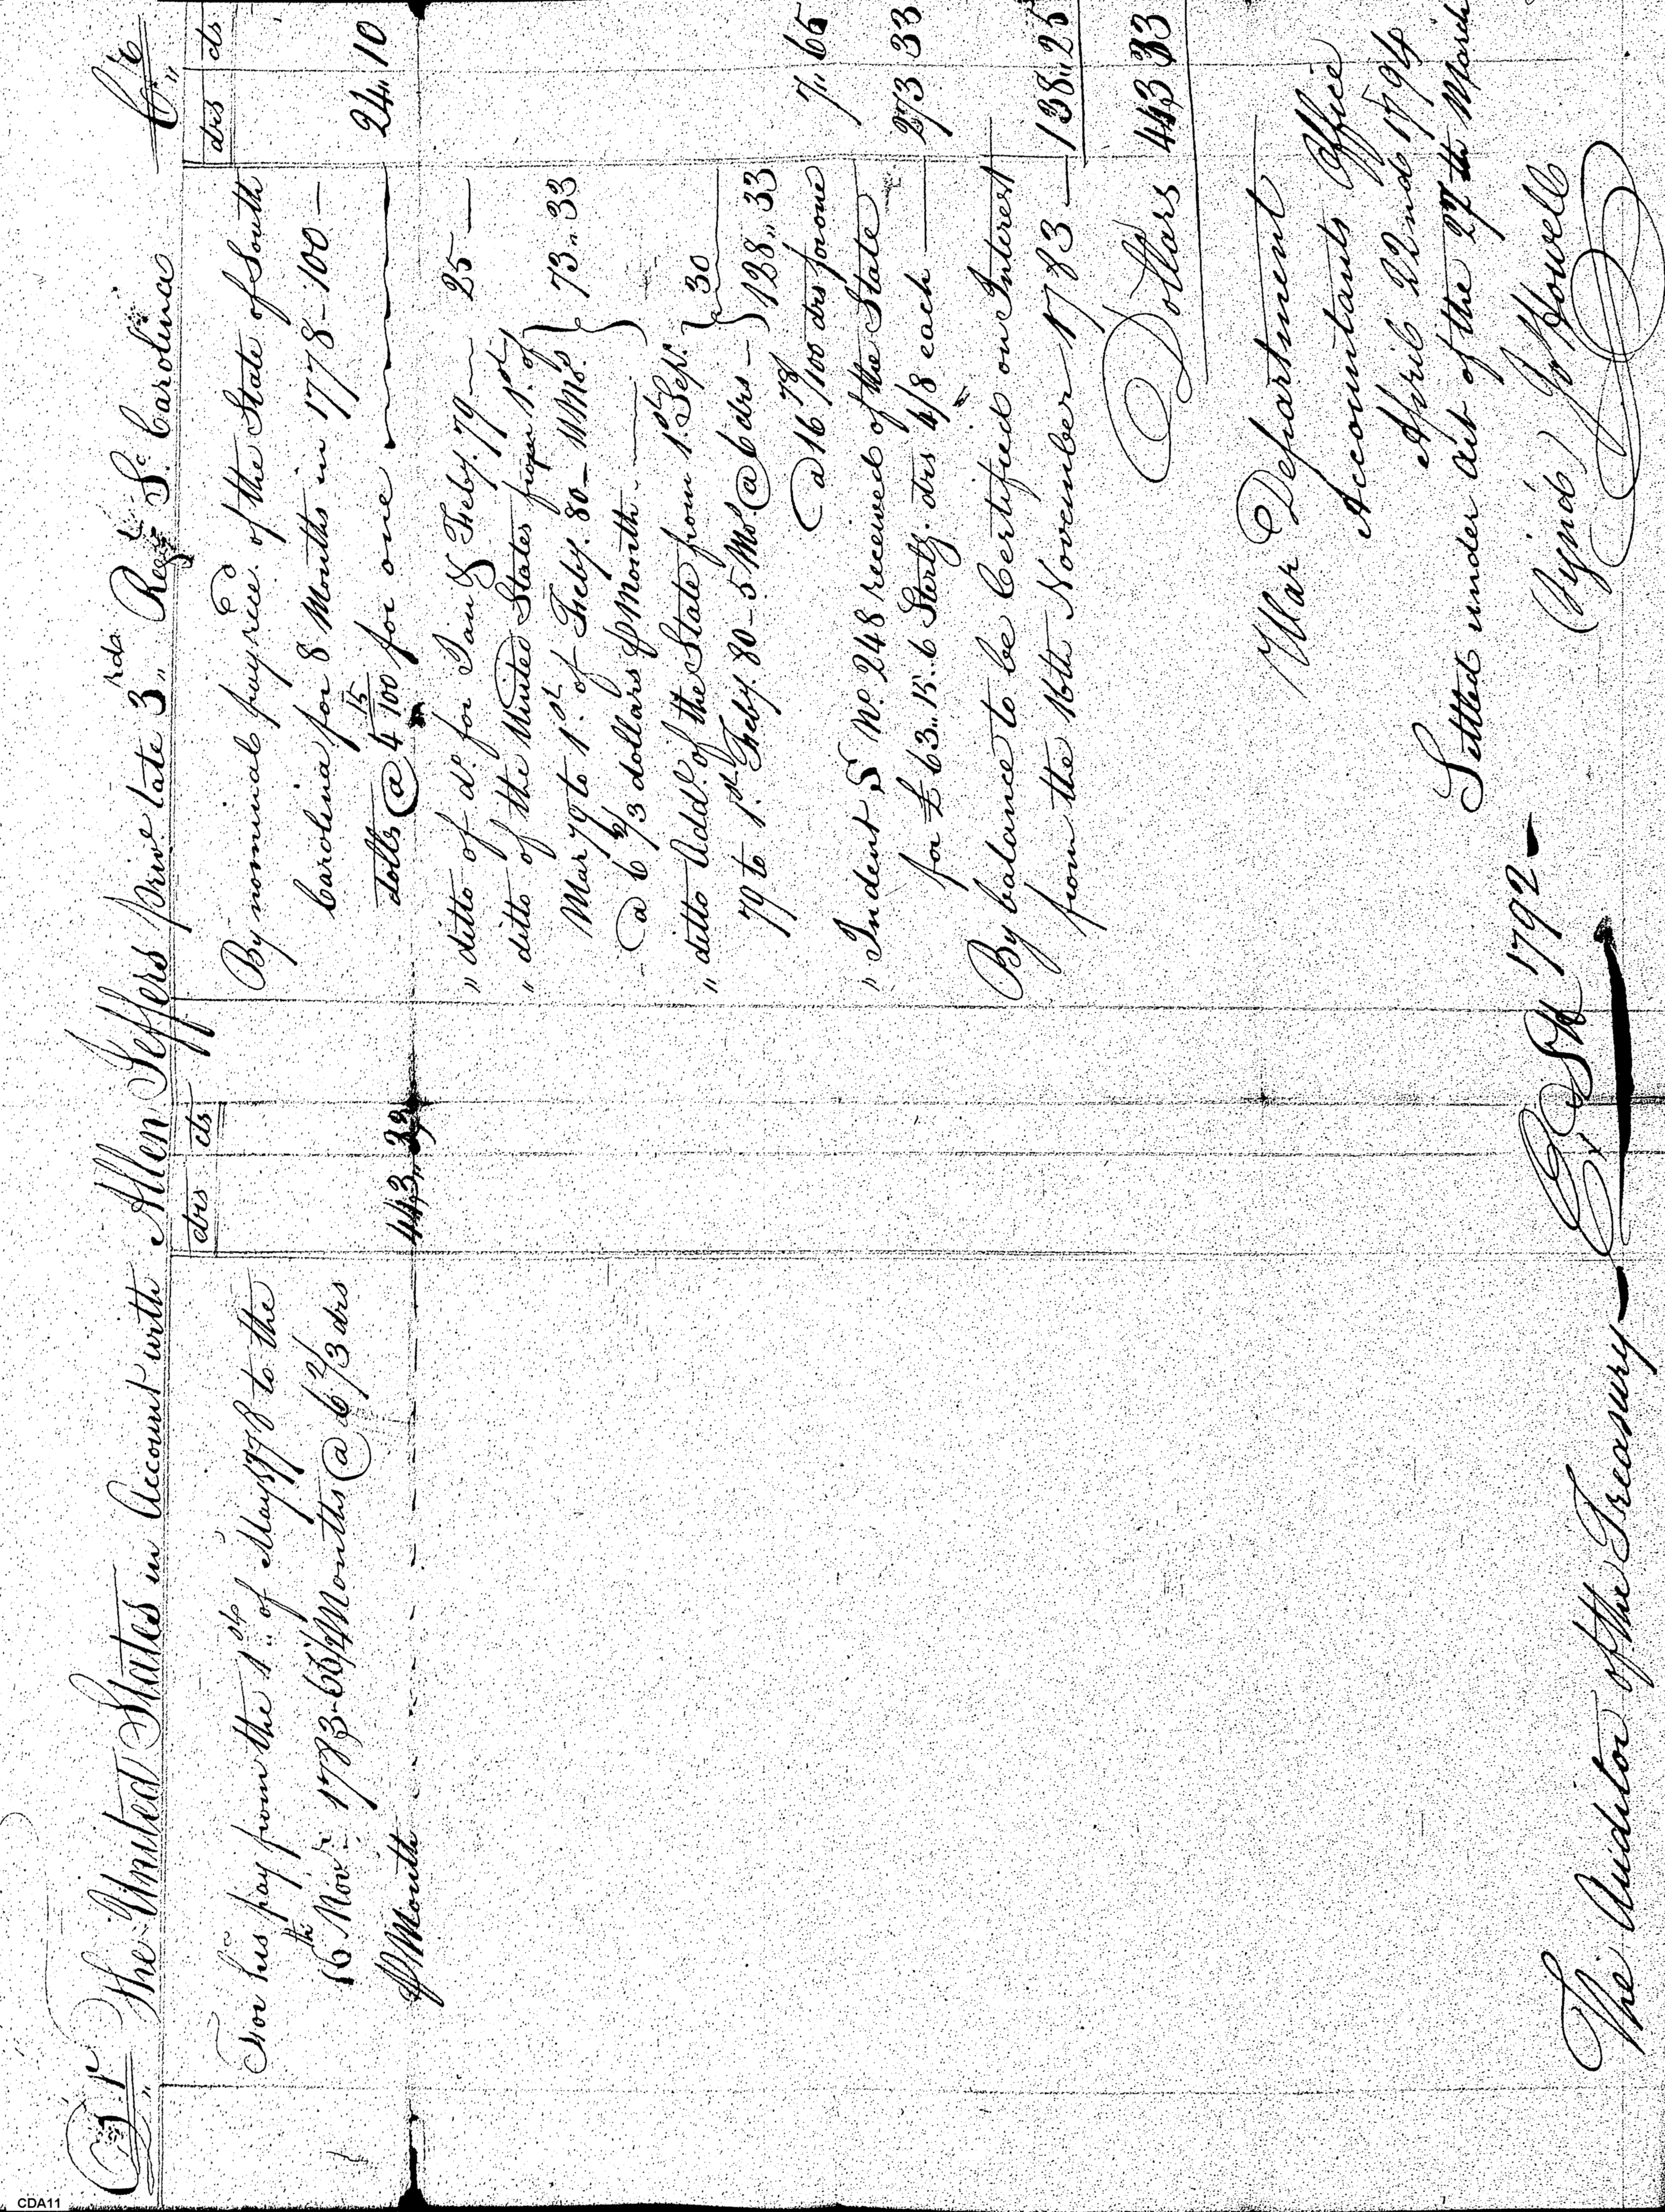 Dr. The United States in Account with Allen Jeffers priv. late 3rd Regt. So. Carolina Cr.
drs cts
For his pay from the 1st of May 1778 to the
16th Novr. 1783 - 66½ Months @ 6 2/3 drs
P Month - - - 443,, 33
drs cts
By nominal pay rece'd of the State of South
Carolina for 8 Months in 1778 - 100 -
dolls @ 4 15/100 for one 24,, 10
" ditto of do. for Jan & Feby. 79 25
" ditto of the United States from 1st of
Mar 79 to 1st of Feby. 80 - 11 Mos. } 73,, 33
@ 6 2/3 dollars P Month
" ditto Addl. of the State from 1st Sept. } 30
79 to 1st Feby. 80 - 5 Mo. @ 6 drs - } 128,, 33
@ 16 78/100 drs for one 7,, 65
" Indent S No. 248 received of the State
for £ 63,, 15,, 6 Sterlg. drs 4/8 each 273 33
By balance to be Certified on Interest
from the 16th November 1783 138,, 25
Dollars 443 33
War Department
Accountants Office
April 22nd 1794
Settled under act of the 27th March
1792
(Sign'd) Jo Howell
The Auditor of the Treasury